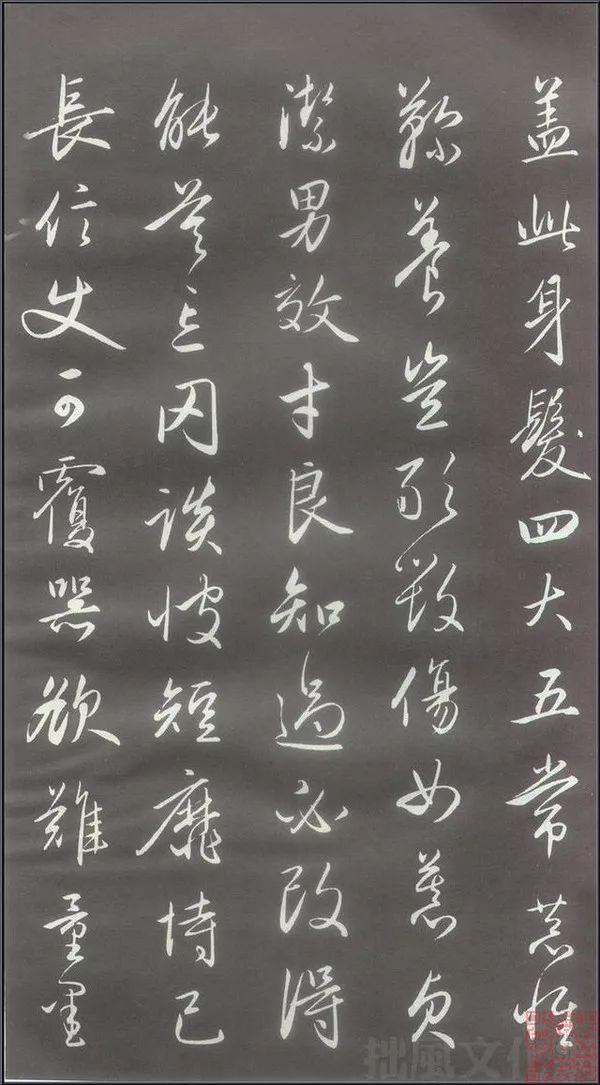 盖此身髮四大五常恭惟
鞠養豈敢毀傷女慕貞
潔男效才良知過必改得
能莫忘罔談彼短靡恃己
長信使可覆器欲難量墨
拙風文化